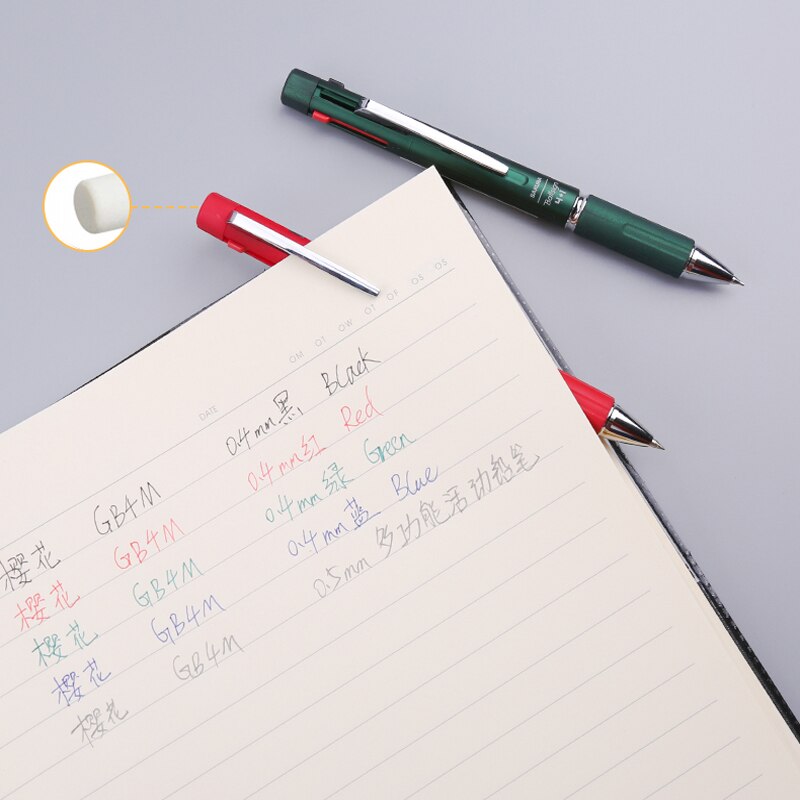 SAKURA
Ballsign 4+1
OM OT OW OT OF OS OS
DATE
樱花 GB4M 0.4mm黑 Black
樱花 GB4M 0.4mm红 Red
樱花 GB4M 0.4mm绿 Green
樱花 GB4M 0.4mm蓝 Blue
樱花 GB4M 0.5mm 多功能活动铅笔